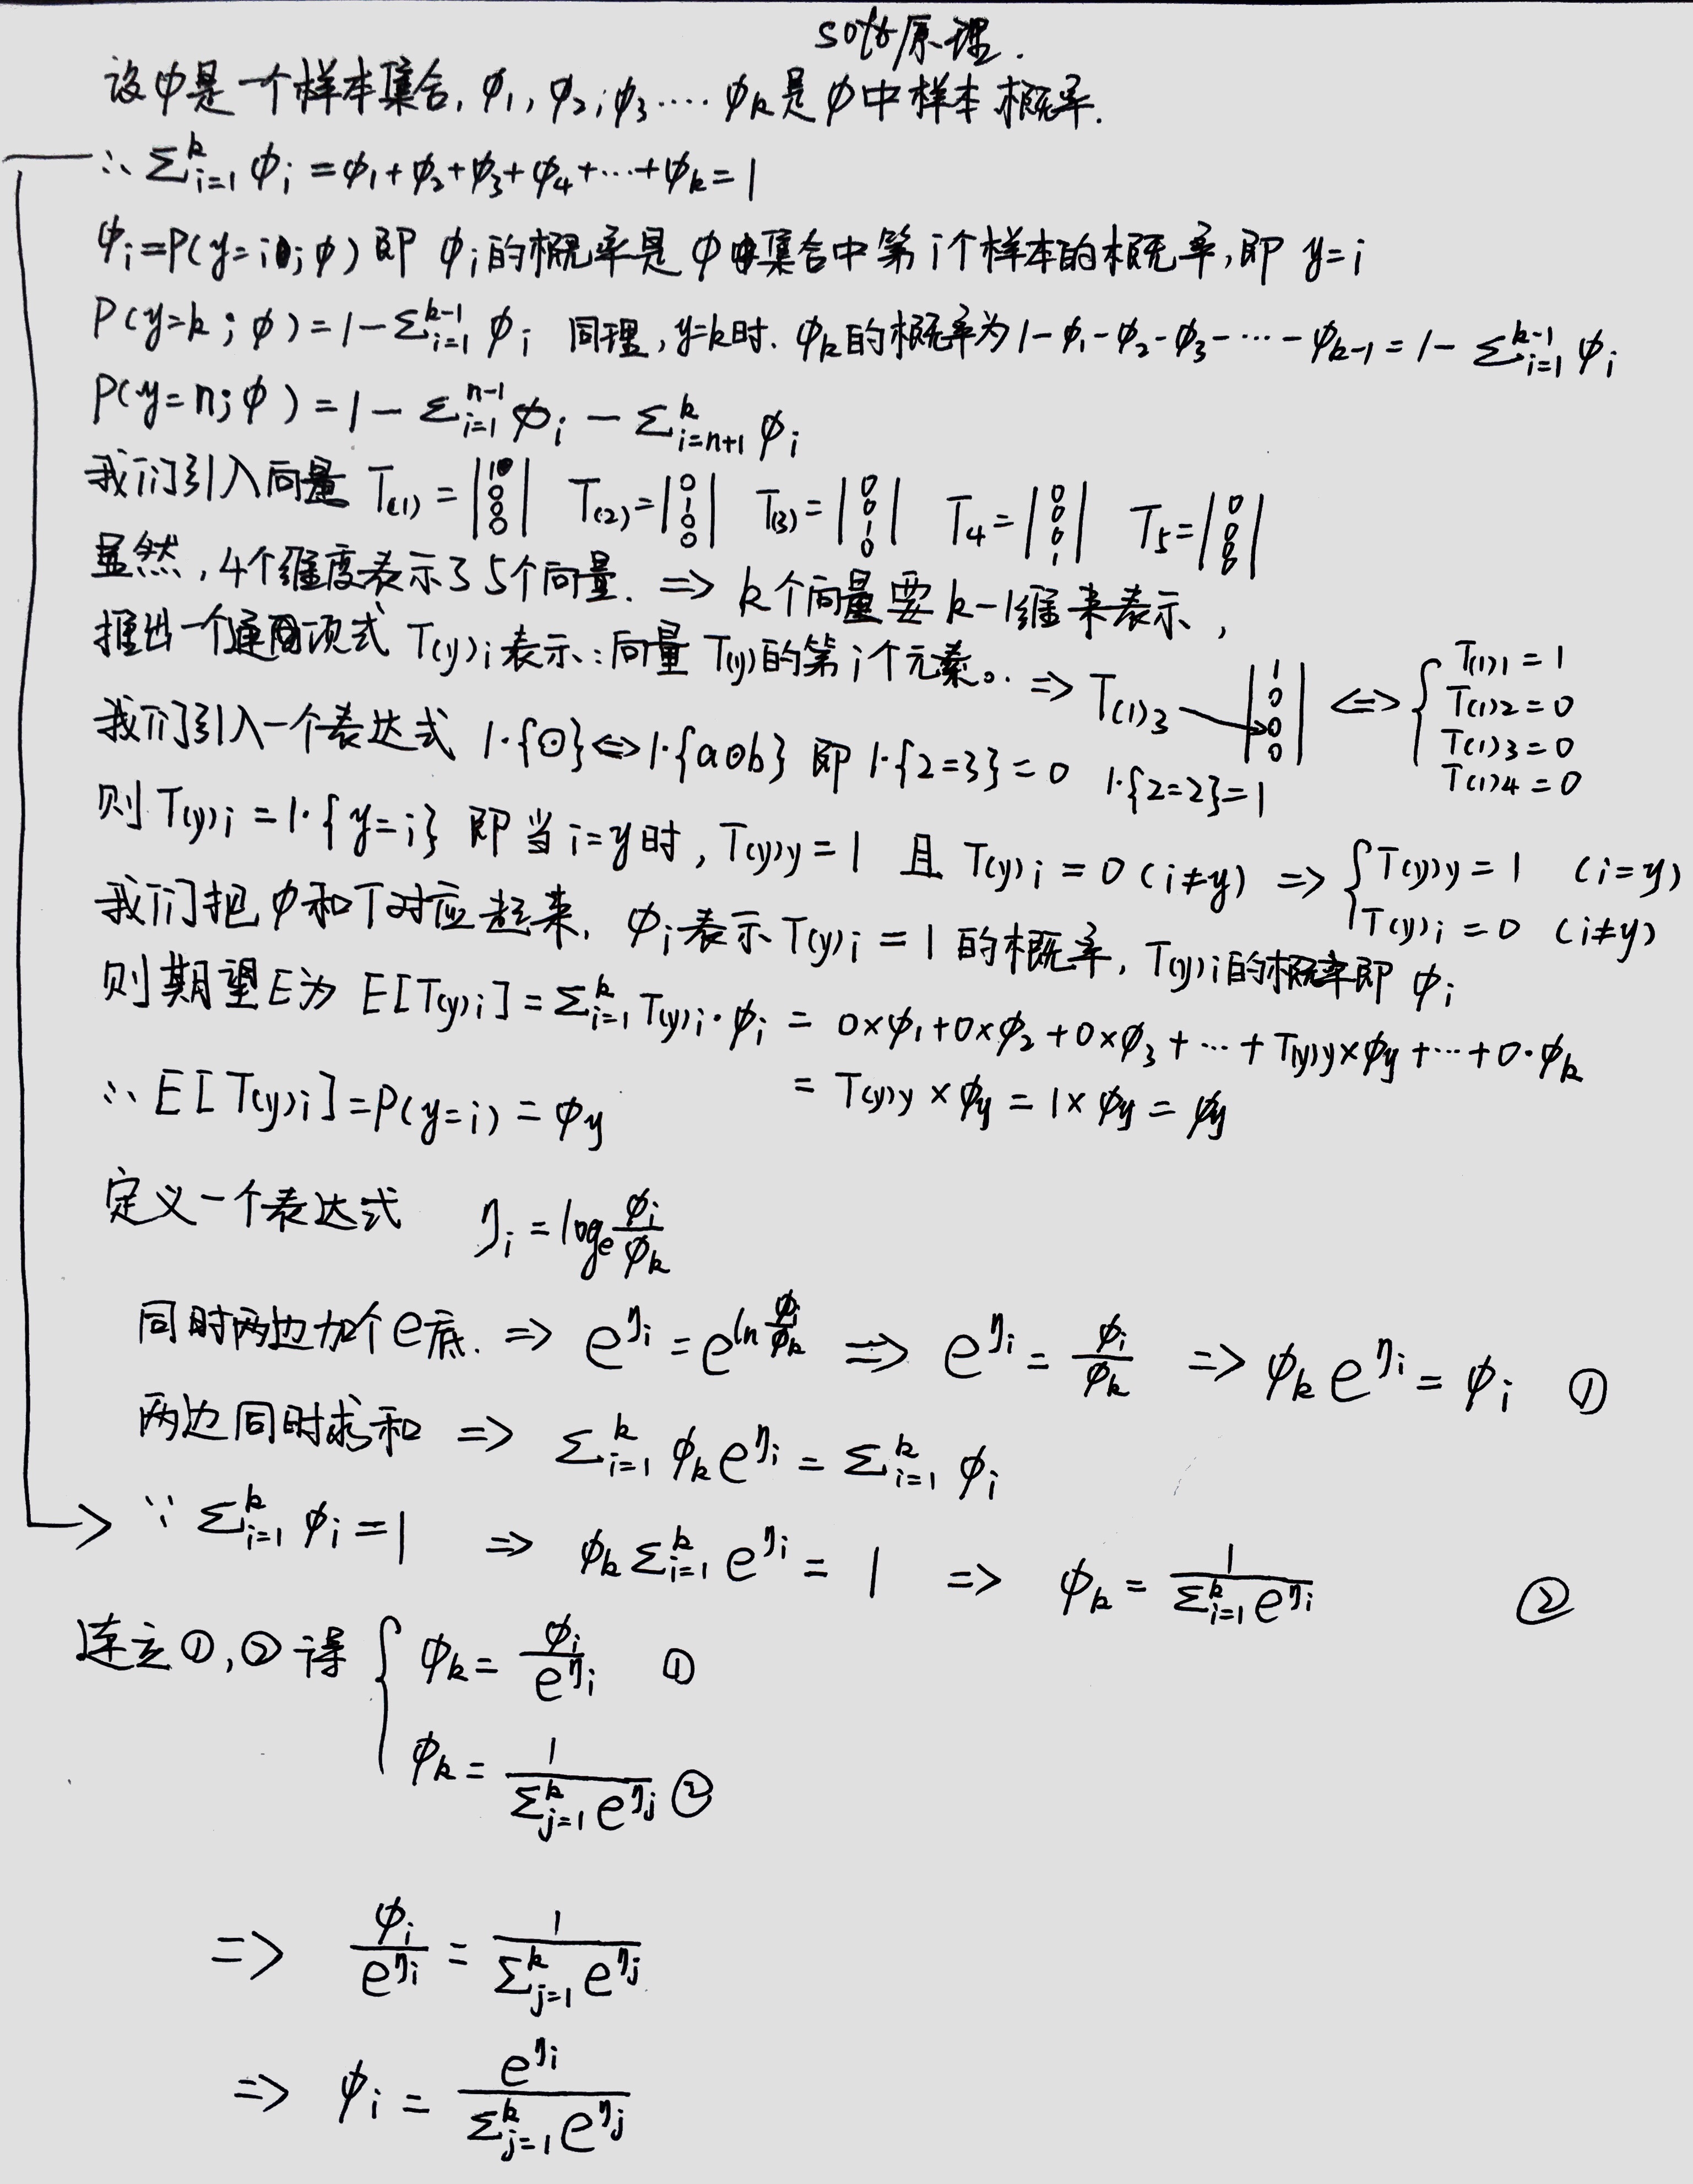 soft原理.
设φ是一个样本集合, φ₁, φ₂, φ₃ ···· φₖ是φ中样本概率.
∴ Σᵢ₌₁ᵏ φᵢ = φ₁+φ₂+φ₃+φ₄+···+φₖ = 1
φᵢ=P(y=i;φ) 即 φᵢ的概率是φ集合中第i个样本的概率,即 y=i
P(y=k;φ)=1-Σᵢ₌₁ᵏ⁻¹ φᵢ 同理,y=k时. φₖ的概率为1-φ₁-φ₂-φ₃-···-φₖ₋₁ = 1- Σᵢ₌₁ᵏ⁻¹ φᵢ
P(y=n;φ)=1- Σᵢ₌₁ⁿ⁻¹ φᵢ - Σᵢ₌ₙ₊₁ᵏ φᵢ
我们引入向量 T₍₁₎ = |1 0 0 0| T₍₂₎ = |0 1 0 0| T₍₃₎ = |0 0 1 0| T₄ = |0 0 0 1| T₅ = |0 0 0 0|
显然,4个维度表示了5个向量. => k个向量要k-1维来表示,
推出一个通项式 T(y)i 表示:向量T(y)的第i个元素. => T(1)3 |1 0 0 0| <=> { T(1)1 = 1
T(1)2 = 0
T(1)3 = 0
T(1)4 = 0
我们引入一个表达式 1·{⊙}<=>1·{a⊙b} 即 1·{2=3}=0 1·{2=2}=1
则 T(y)i = 1·{y=i} 即当i=y时,T(y)y = 1 且 T(y)i = 0 (i≠y) => { T(y)y = 1 (i=y)
T(y)i = 0 (i≠y)
我们把φ和T对应起来, φᵢ表示T(y)i = 1的概率,T(y)i的概率即 φᵢ
则期望E为 E[T(y)i] = Σᵢ₌₁ᵏ T(y)i·φᵢ = 0×φ₁+0×φ₂+0×φ₃+···+T(y)y×φy+···+0·φₖ
= T(y)y×φy = 1×φy = φy
∴ E[T(y)i] = P(y=i) = φy
定义一个表达式 ηᵢ = logₑ φᵢ/φₖ
同时两边加个e底. => e^ηᵢ = e^(ln φᵢ/φₖ) => e^ηᵢ = φᵢ/φₖ => φₖ e^ηᵢ = φᵢ ①
两边同时求和 => Σᵢ₌₁ᵏ φₖ e^ηᵢ = Σᵢ₌₁ᵏ φᵢ
∵ Σᵢ₌₁ᵏ φᵢ = 1 => φₖ Σᵢ₌₁ᵏ e^ηᵢ = 1 => φₖ = 1/(Σᵢ₌₁ᵏ e^ηᵢ) ②
连立①,②得 { φₖ = φᵢ/e^ηᵢ ①
φₖ = 1/(Σⱼ₌₁ᵏ e^ηⱼ) ②
=> φᵢ/e^ηᵢ = 1/(Σⱼ₌₁ᵏ e^ηⱼ)
=> φᵢ = e^ηᵢ/(Σⱼ₌₁ᵏ e^ηⱼ)